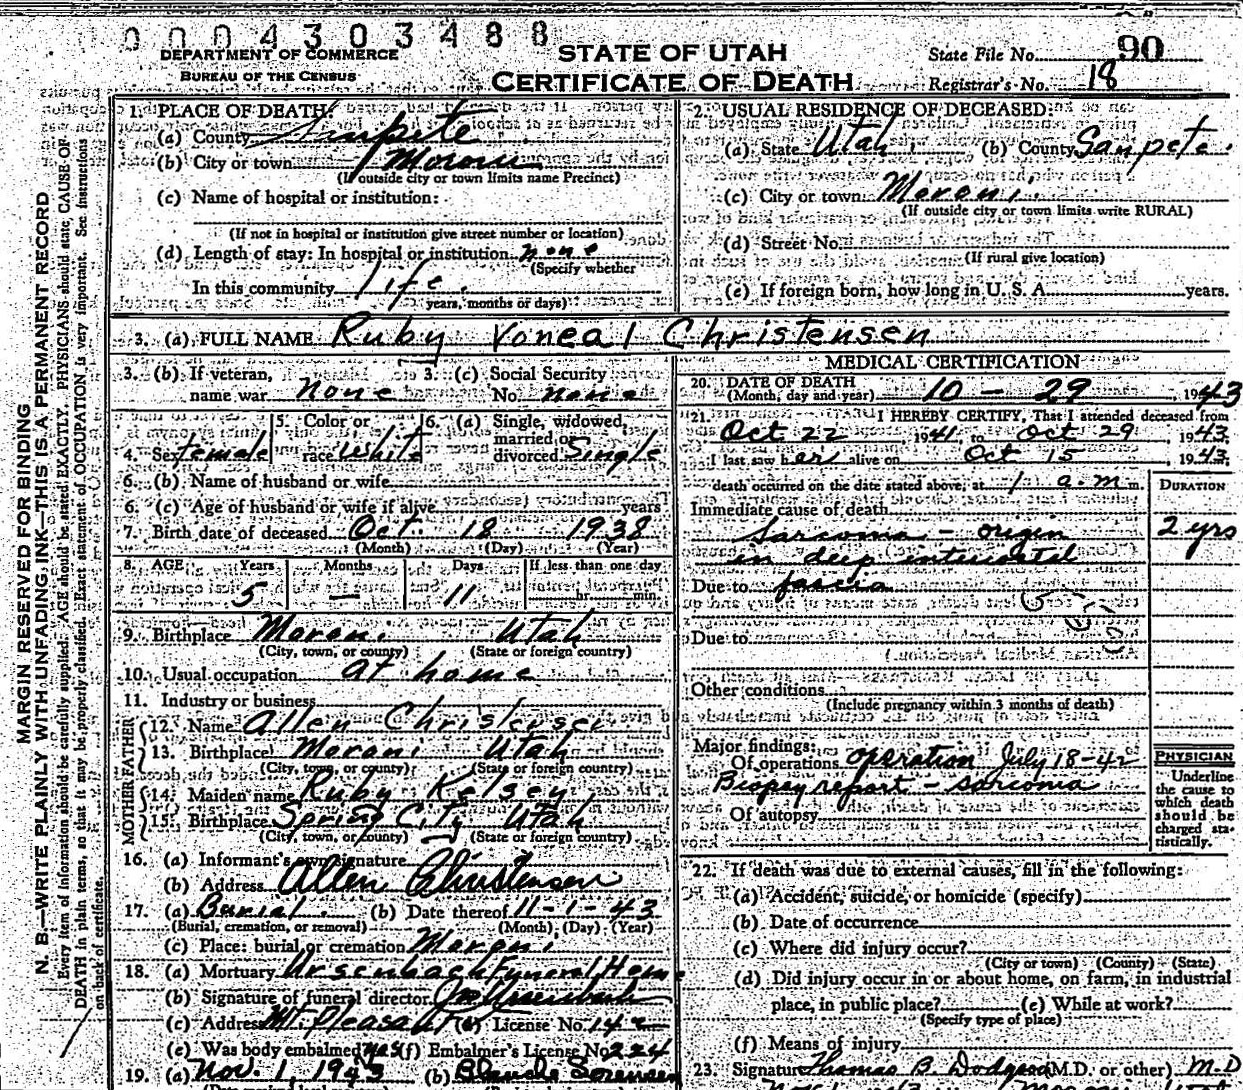 0 0 0 4 3 0 3 4 8 8
DEPARTMENT OF COMMERCE
BUREAU OF THE CENSUS
STATE OF UTAH
CERTIFICATE OF DEATH
State File No. 90
Registrar's No. 18
MARGIN RESERVED FOR BINDING
N. B—WRITE PLAINLY WITH UNFADING INK—THIS IS A PERMANENT RECORD
Every item of information should be carefully supplied. AGE should be stated EXACTLY. PHYSICIANS should state CAUSE OF
DEATH in plain terms, so that it may be properly classified. Exact statement of OCCUPATION is very important. See Instructions
on back of certificate.
1. PLACE OF DEATH:
(a) County Sanpete
(b) City or town Moroni
(If outside city or town limits name Precinct)
(c) Name of hospital or institution:
(If not in hospital or institution give street number or location)
(d) Length of stay: In hospital or institution none
(Specify whether
In this community life.
years, months or days)
2. USUAL RESIDENCE OF DECEASED:
(a) State Utah (b) County Sanpete.
(c) City or town Moroni
(If outside city or town limits write RURAL)
(d) Street No.
(If rural give location)
(e) If foreign born, how long in U. S. A. years.
3. (a) FULL NAME Ruby Voneal Christensen
3. (b) If veteran, name war none 3. (c) Social Security No. none
4. Sex female 5. Color or race White 6. (a) Single, widowed, married or divorced Single
6. (b) Name of husband or wife
6. (c) Age of husband or wife if alive years
7. Birth date of deceased Oct. 18 1938
(Month) (Day) (Year)
8. AGE Years Months Days If less than one day
5 — 11 hr. min.
9. Birthplace Moroni Utah
(City, town, or county) (State or foreign country)
10. Usual occupation at home
11. Industry or business
FATHER
12. Name Allen Christensen
13. Birthplace Moroni Utah
(City, town, or county) (State or foreign country)
MOTHER
14. Maiden name Ruby Kelsey
15. Birthplace Spring City Utah
(City, town, or county) (State or foreign country)
16. (a) Informant's own signature
(b) Address Allen Christensen
17. (a) Burial. (b) Date thereof 11-1-43
(Burial, cremation, or removal) (Month) (Day) (Year)
(c) Place: burial or cremation Moroni
18. (a) Mortuary Ursenbach Funeral Home
(b) Signature of funeral director Ursenbach
(c) Address Mt. Pleasant (d) License No. 14
(e) Was body embalmed yes (f) Embalmer's License No 224
19. (a) Nov. 1, 1943 (b) Blanche Sorensen
MEDICAL CERTIFICATION
20. DATE OF DEATH
(Month, day and year) 10 - 29, 1943
21. I HEREBY CERTIFY, That I attended deceased from
Oct 22 1941, to Oct 29 1943;
I last saw her alive on Oct 15, 1943;
death occurred on the date stated above, at 1 a.m m.
DURATION
Immediate cause of death
Sarcoma - origin 2 yrs
in deep
Due to fascia
Due to
Other conditions
(Include pregnancy within 3 months of death)
Major findings:
Of operations operation July 18-42
Biopsy report - sarcoma
Of autopsy
PHYSICIAN
Underline
the cause to
which death
should be
charged sta-
tistically.
22. If death was due to external causes, fill in the following:
(a) Accident, suicide, or homicide (specify)
(b) Date of occurrence
(c) Where did injury occur?
(City or town) (County) (State)
(d) Did injury occur in or about home, on farm, in industrial
place, in public place? (e) While at work?
(Specify type of place)
(f) Means of injury
23. Signature Thomas B. Dodgson (M.D. or other) M.D